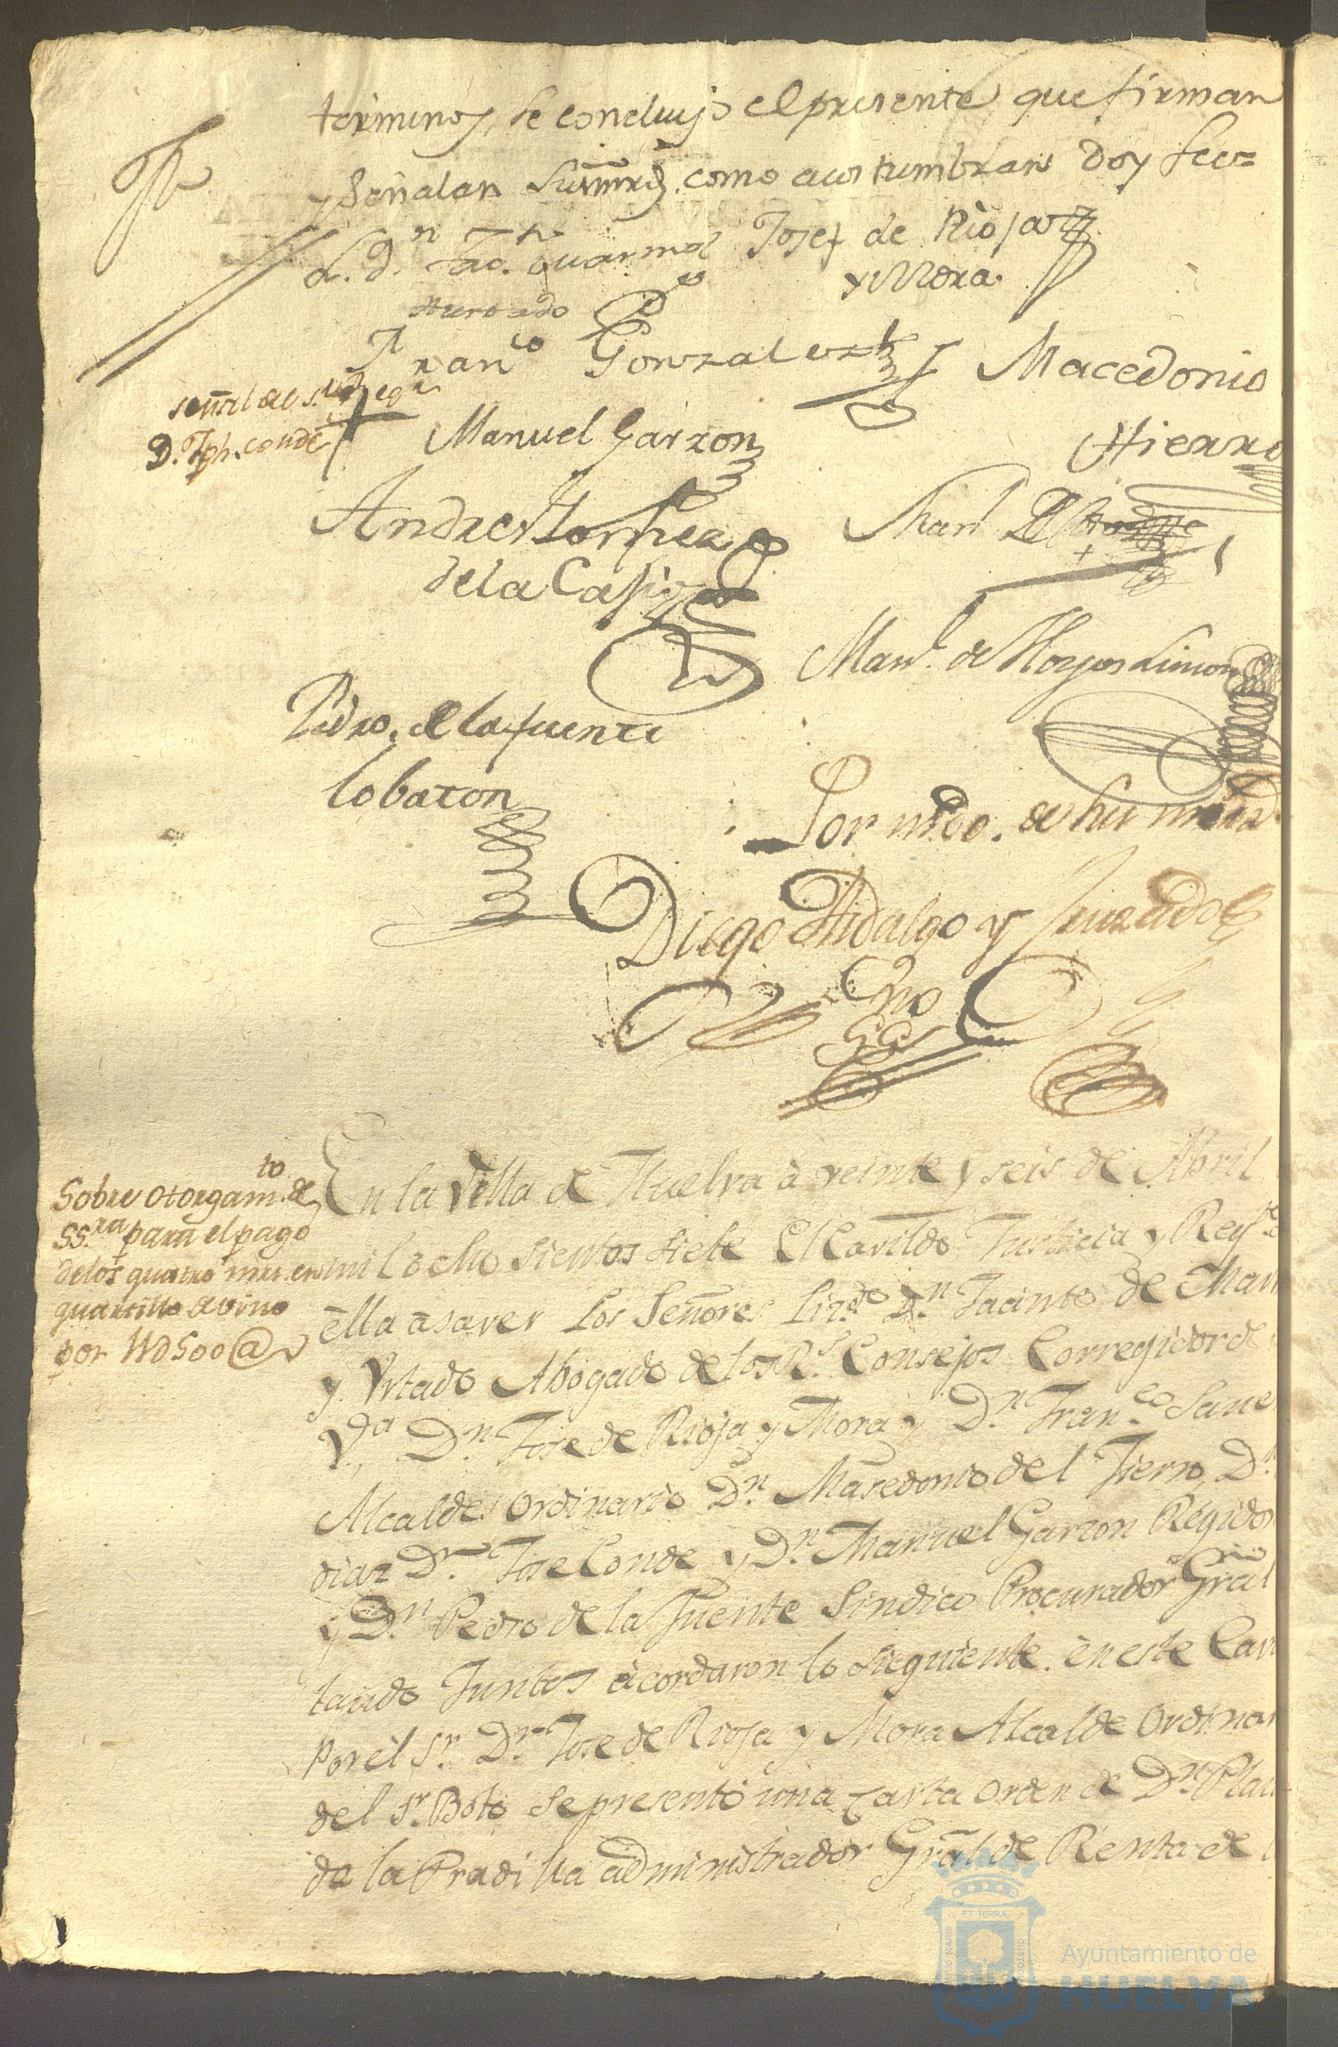 terminos, se concluyo el presente que firman
y Señalan Sus mrds. como acostumbran Doy fee=
L.do Dn. Jac.to Marmol Josef de Rioja
Hurtado y Mora
Fran.co Gonzalez Macedonio
Hierro
señal del s.or Reg.r
D. Jph. conde Manuel Garzon
Andres Tor
de la Ca
Man.l de Hoyos Limon
Pedro de la fuente
lobaton
Por m.do de sus mrds
Diego Hidalgo y
Sno
Sobre otorgam.to de
SS.ra para el pago
de los quatro mrs. en
quartillo de vino
por 11D500 @
En la Villa de Huelva à veinte y seis de Abril
mil ocho sientos siete El Cavildo Justicia y Reg.to
èlla a saver Los Señores Liz.do Dn. Jacinto de Mar
y Vrtado Abogado de los R.s Consejos Corregidor de
V.a Dn Jose de Rioja y Mora y Dn. Fran.co Sane
Alcaldes Ordinario Dn. Masedonio del Fierro, Dn
diaz Dn. Jose Conde y Dn. Manuel Garzon Regidor
y Dn. Pedro de la Fuente Sindico Procurador Gral
tando Juntos acordaron lo siguiente. èn este Cav
Por el Sr. Dn. Jose de Rioja y Mora Alcalde Ordinar
del Sr. Boto se presentó una Carta Orden de Dn. Pla
de la Pradilla administrador Gral de Renta de
Ayuntamiento de
HUELVA